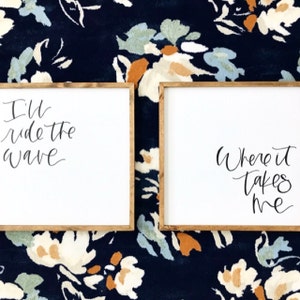 I'll
ride the
wave
Where it
takes
me